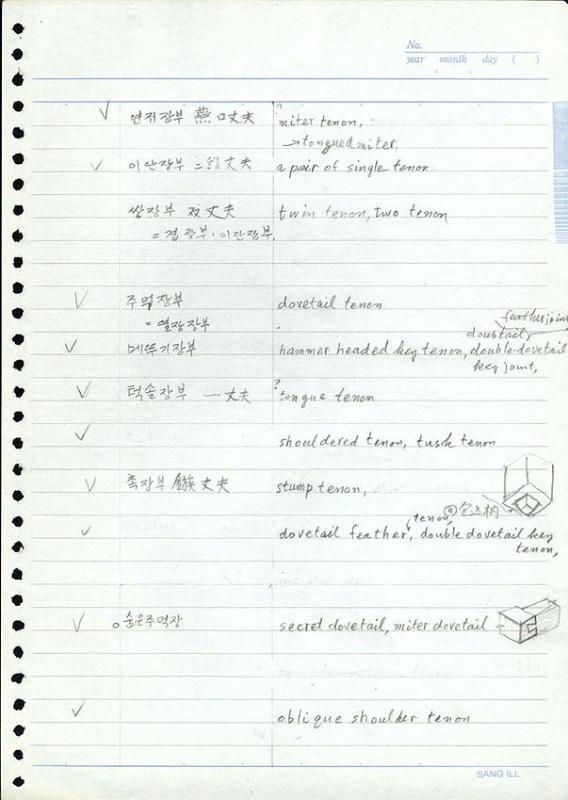 No.
year month day ( )
연귀장부 燕口丈夫 miter tenon,
→tongued miter.
이단장부 二段丈夫 a pair of single tenon
쌍장부 双丈夫 twin tenon, two tenon
= 겹장부·이단장부.
주먹장부 dovetail tenon
= 열장장부
featherjoint
doustail,
메뚜기장부 hammer headed key tenon, double-dovetail
key joint,
턱솔장부 一丈夫 ? tongue tenon
shouldered tenon, tusk tenon
촉장부 鏃丈夫 stump tenon,
包込柄
tenon,
dovetail feather, double dovetail key
tenon,
숨은주먹장 secret dovetail, miter dovetail
oblique shoulder tenon
SANG ILL